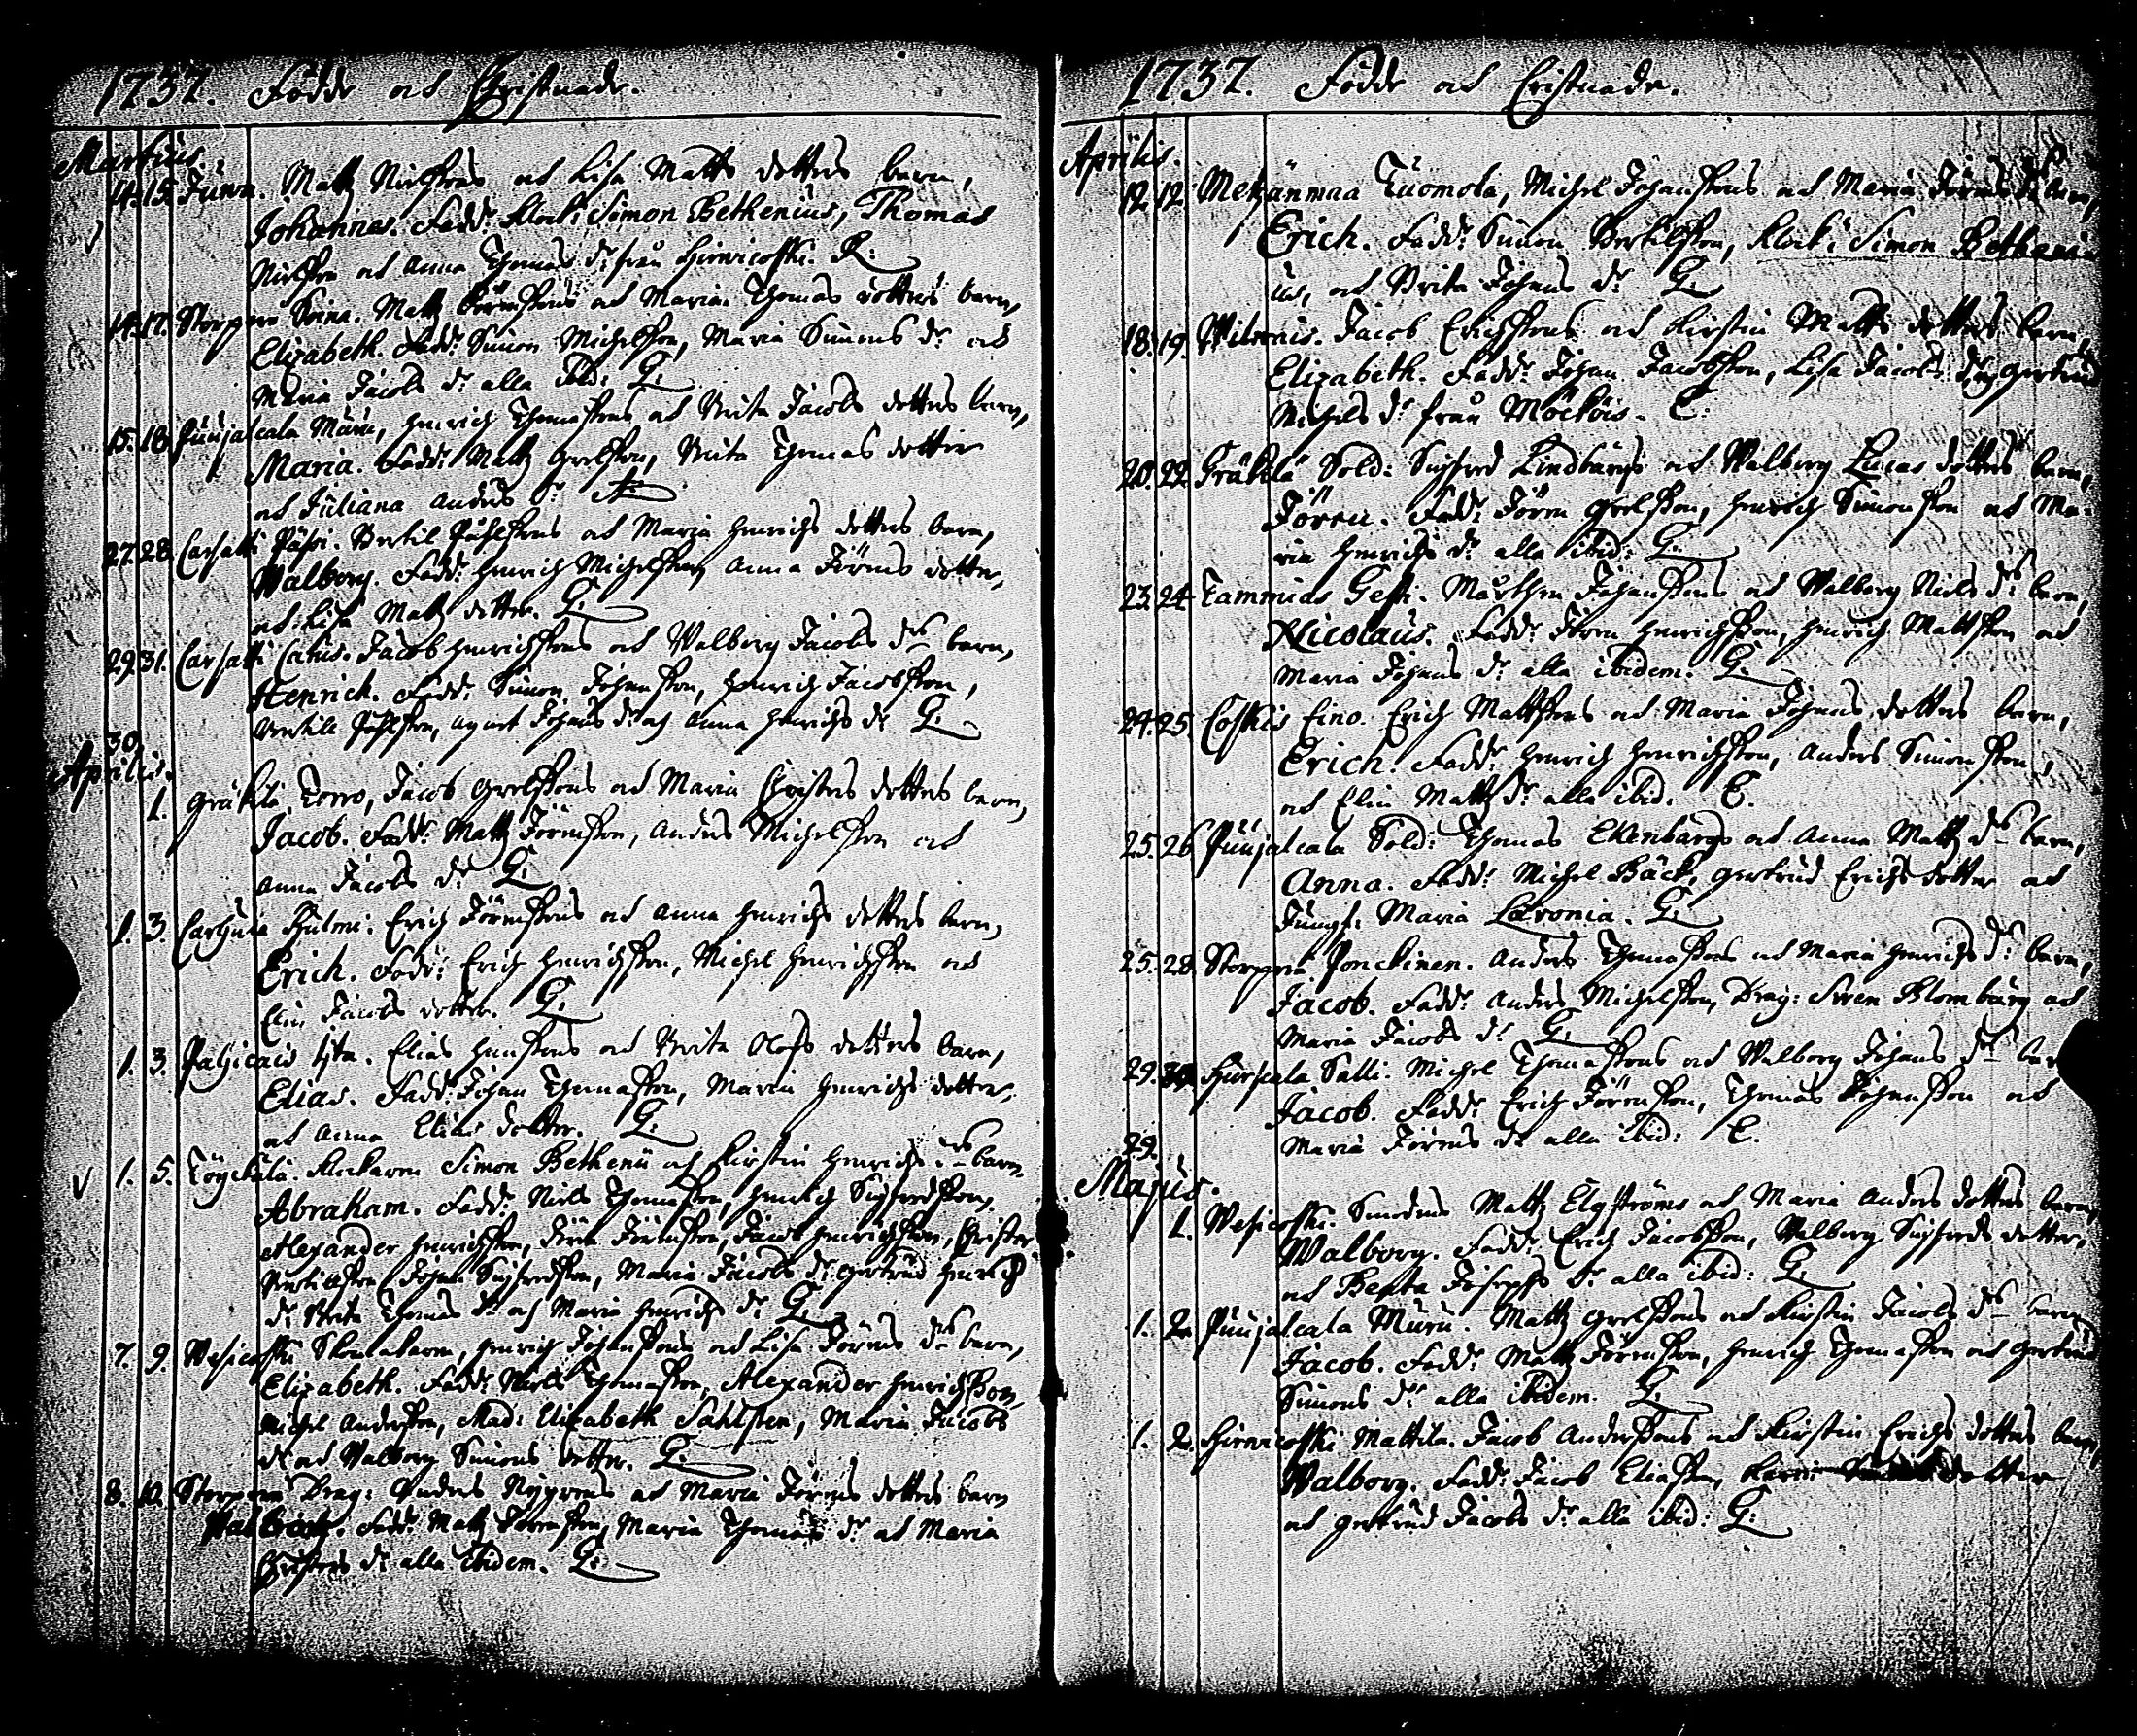 1737. Födde och Christnade.
Martius.
14. 15. Juva. Mattz Nielssons och Lisa Matts dotters barn,
Johannes. Fadd: Klock: Simon Bethenius, Thomas
Nielsson och Anna Thomas d: från Hirvicoski. R:
14. 17. Storpere Matts Jörenssons och Maria Thomas dotters barn,
Elizabeth. Fadd: Simon Michelsson, Maria Simons d: och
Maria Jacobs d: alla ibid: G.
15. 18. Puujalcala Muru, Henrich Thomassons och Brita Jacobs dotters barn,
Maria. Fadd: Mattz Grelsson, Brita Thomas dotter
och Juliana Anders d:
27. 28. Carhatti Påhri. Bertil Påhlssons och Maria Henrichs dotters barn,
Walborg. Fadd: Henrich Michelsson, Anna Jörens dotter,
och Lisa Mattz dotter. G.
29. 31. Carhatti Jacob Henrichssons och Walborg Jacobs d: barn,
Henrich. Fadd: Simon Johansson, Henrich Jacobsson,
Bertill Påhlsson, Johans d: och Anna Henrichs d: G.
30.
Aprilis.
1. Gräkilä Torro, Jacob Grelssons och Maria Christers dotters barn,
Jacob. Fadd: Mattz Jörensson, Anders Michelsson och
Anna Jacobs d: G.
1. 3. Carhula Hulmi. Erich Jörenssons och Anna Henrichs dotters barn,
Erich. Fadd: Erich Henrichsson, Michel Henrichsson och
Elin Jacobs dotter. G.
1. 3. Palhicais Elias Hanssons och Brita Olofs dotters barn,
Elias. Fadd: Johan Thomasson, Maria Henrichs dotter,
och Anna Elias dotter. G.
V 1. 5. Töyckälä. Klockaren Simon Bethenii och Kirstin Henrichs d: barn,
Abraham. Fadd: Niels Thomasson, Henrich Sigfredsson,
Alexander Henrichsson, Jören Jörensson, Jacob Henrichsson, Christer
Bertillsson, Johan Sigfredsson, Maria Jacobs d: Gertrud Henrichs
d: Brita Thomas d: och Maria Henrichs d: G.
7. 9. Wesicoski Skomakaren, Henrich Johanssons och Lisa Jörens d: barn,
Elizabeth. Fadd: Niels Thomasson, Alexander Henrichsson,
Michel Andersson, Mad: Elizabeth Sahlsten, Maria Jacobs
d: och Walborg Simons dotter. G.
8. 10. Storpere Drag: Anders Nygrens och Maria Jörens dotters barn
Walborg. Fadd: Mattz Jörensson, Maria Thomas d: och Maria
Christers d: alla ibidem. G.
1737. Födde och Christnade.
Aprilis.
12. 12. Metzänmaa Tuomola, Michel Johanssons och Maria Jörens d: barn,
Erich. Fadd: Simon Bertilsson, Klock: Simon Betheni
us, och Brita Johans d: G.
18. 19. Jacob Erichssons och Kirstin Matts dotters barn,
Elizabeth. Fadd: Johan Jacobsson, Lisa Jacobs d: och Gertrud
Michels d: från Möckois. C.
20. 22. Gräkilä Sold: Sigfred Lindbärgs och Walborg Lucas dotters barn,
Jören. Fadd: Jören Grelsson, Henrich Simonsson och Ma-
ria Henrichs d: alla ibid: G.
23. 24. Tammias Gesti. Mårthen Johanssons och Walborg Niels d: barn,
Nicolaus. Fadd: Jören Henrichsson, Henrich Mattsson och
Maria Johans d: alla ibidem. G.
24. 25. Coskis Eino. Erich Mattssons och Maria Johans dotters barn,
Erich. Fadd: Henrich Henrichsson, Anders Simonsson,
och Elin Mattz d: alla ibid. C.
25. 26. Puujalcala Sold: Thomas Ekenbärgs och Anna Mattz d: barn,
Anna. Fadd: Michel Bäck, Gertrud Erichs dotter och
Jungf: Maria Lavonia. G.
25. 28. Storpere Ponckinen. Anders Thomassons och Maria Henrichs d: barn,
Jacob. Fadd: Anders Michelsson, Drag: Sven Blombärg och
Maria Jacobs d: G.
29. 30. Hurscala Salli. Michel Thomassons och Walborg Johans d:
Jacob. Fadd: Erich Jörensson, Thomas Johansson och
Maria Jörens d: alla ibid: C.
29.
Majus.
1. Wesicoski. Smedens Mattz Elgströms och Maria Anders dotters barn,
Walborg. Fadd: Erich Jacobsson, Walborg Sigfreds dotter,
och Beata Josephs d: alla ibid: G.
1. 2. Puujalcala Muru. Mattz Grelssons och Kirstin Jacobs d: barn
Jacob. Fadd: Mattz Jörensson, Henrich Thomasson och Gertrud
Simons d: alla ibidem. G.
1. 2. Hirvicoski Mattila. Jacob Anderssons och Kirstin Erichs dotters barn,
Walborg. Fadd: Jacob Eliasson, Karin dotter
och Gertrud Jacobs d: alla ibid: G: